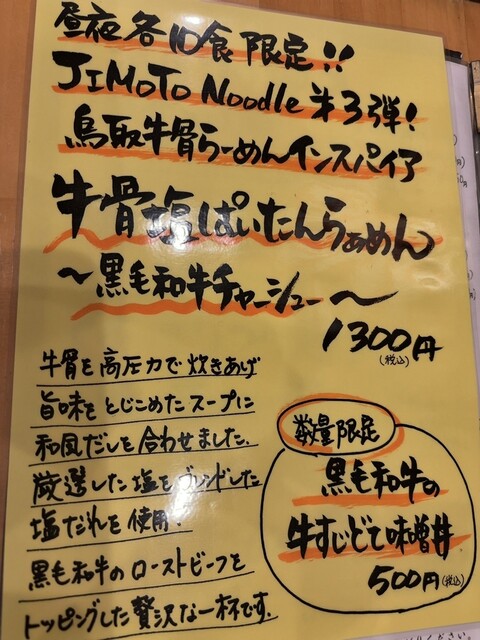 昼夜各10食限定!!
JIMOTO Noodle 第3弾!
鳥取牛骨らーめんインスパイア
牛骨塩ぱいたんらぁめん
〜黒毛和牛チャーシュー〜
1300円
(税込)
牛骨を高圧力で炊きあげ
旨味をとじこめたスープに
和風だしを合わせました.
厳選した塩をブレンドした
塩だれを使用!
黒毛和牛のローストビーフを
トッピングした贅沢な一杯です.
数量限定
黒毛和牛の
牛すじどて味噌丼
500円(税込)